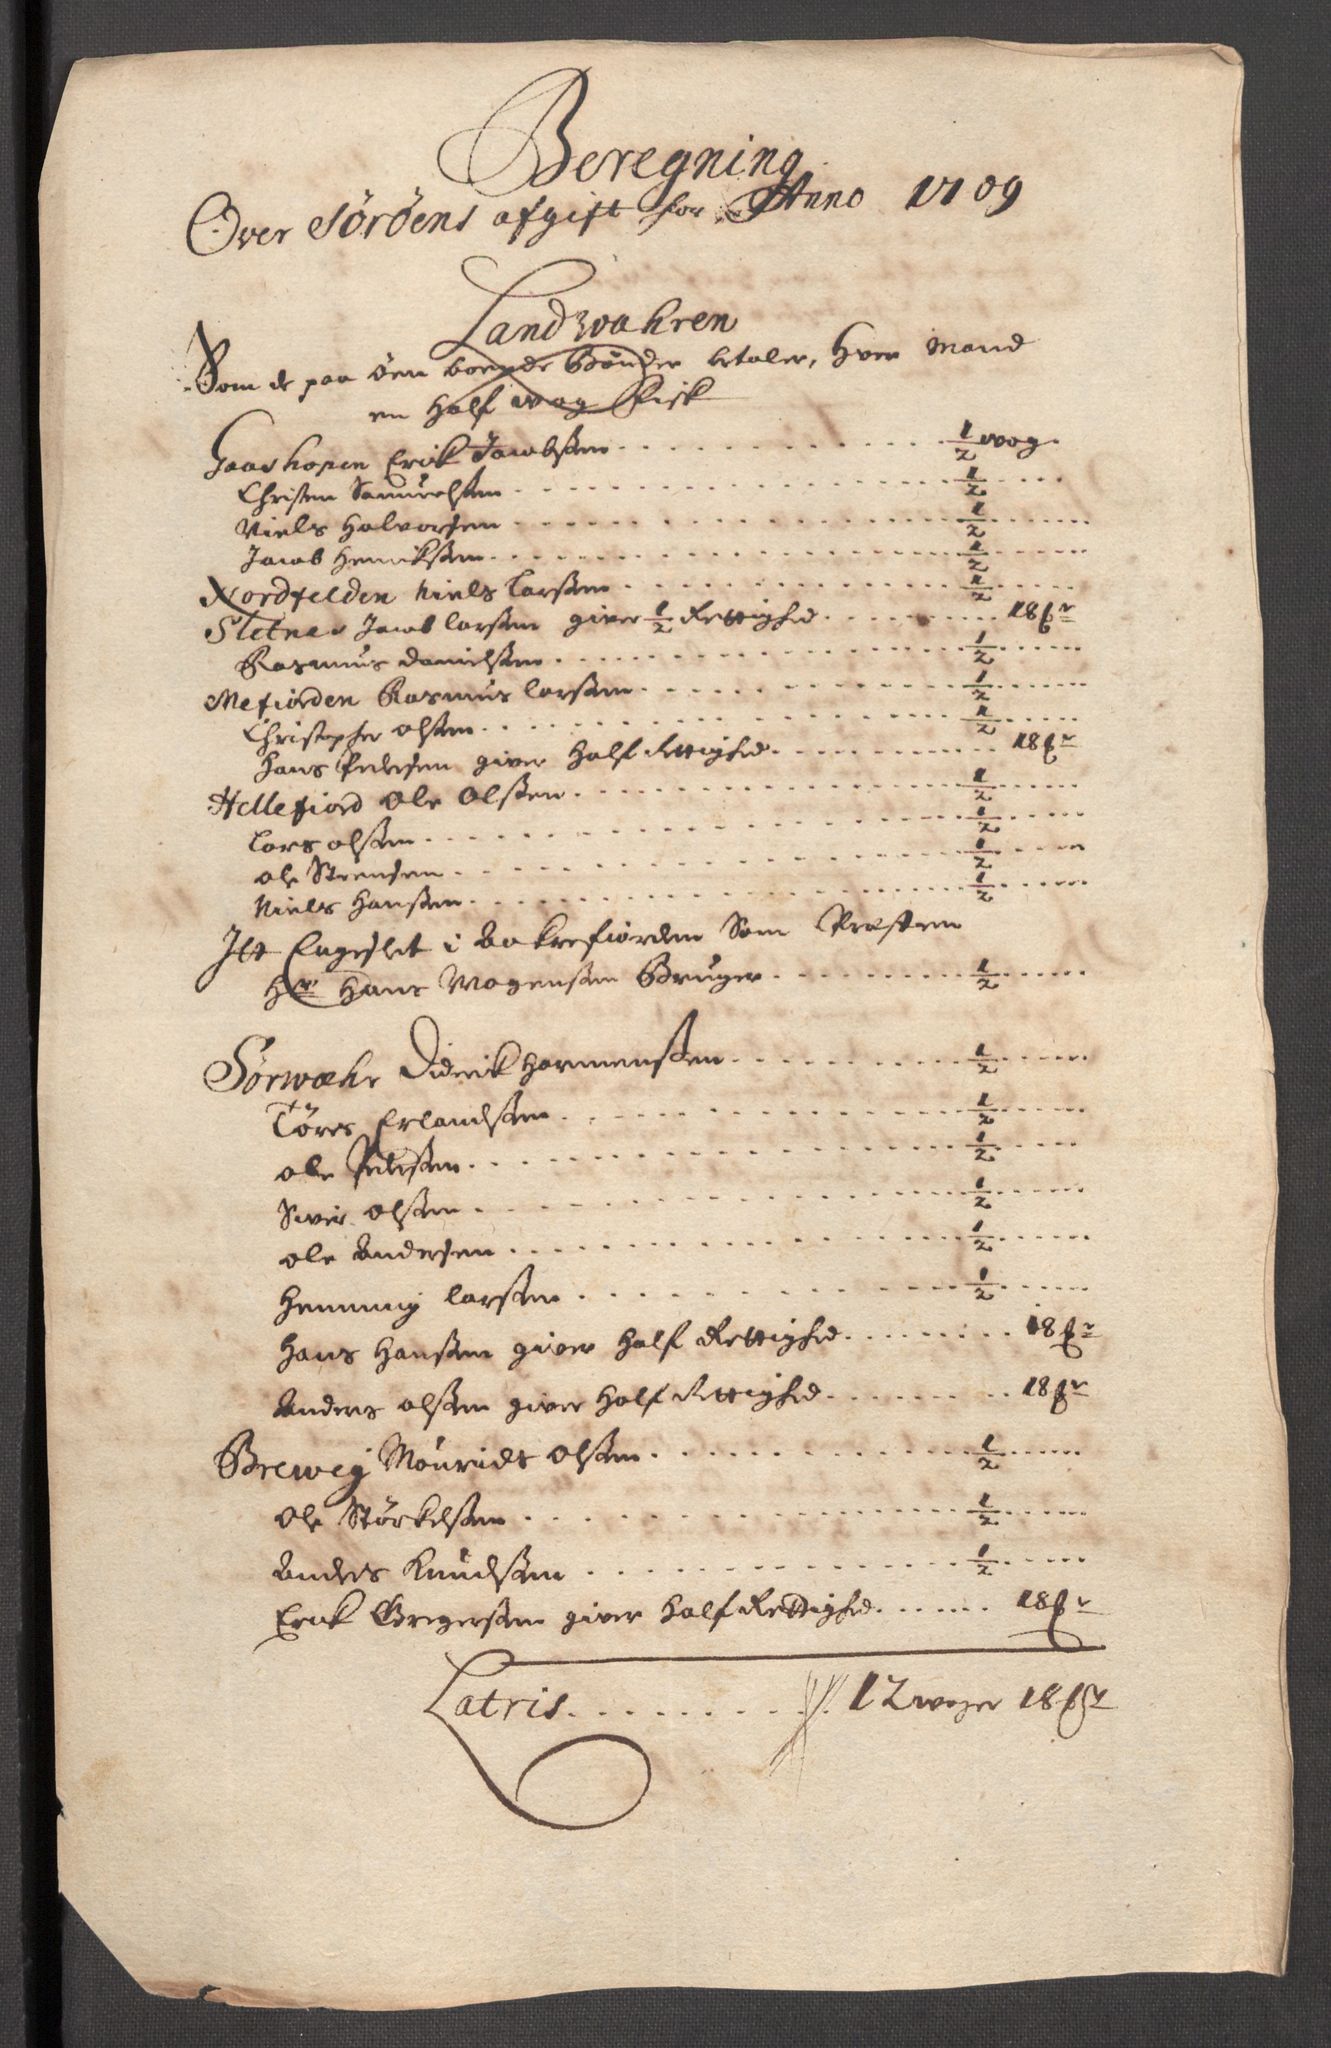 Beregning
Over Söröens afgift for Anno 1709
Landwahren
Som de paa öen boende Bönder betaler, hver Mand
en half wog Fisk
Gaashopen Erik Jacobsen . . . ½ wog.
Christen Samuelsen . . . ½ . . .
Niels Halvorsen . . . ½ . . .
Jacob Henriksen . . . ½ . . .
Nordfelden Niels Larsen . . . ½
Sletnes Jacob Larsen giver ½ Rettighed . . . 18 
Rasmus Danielsen . . . ½ . . .
Mefiorden Rasmus Larsen . . . ½ . . .
Christopher Olsen . . . ½ . . .
Hans Pedersen giver Half Rettighed . . . 18 
Hellefiord Ole Olsen . . . ½ . . .
Lars Olsen . . . ½ . . .
Ole Steensen . . . ½ . . .
Niels Hansen . . . ½ . . .
Itt Engeslet i Bakrefiorden Som Præsten
Hr Hans Mogensen Bruger . . . ½ . . .
Sörwæhr Diderik Harmensen . . . ½ . . .
Töres Erlandsen . . . ½ . . .
Ole Pedersen . . . ½ . . .
Siver Olsen . . . ½ . . .
Ole Andersen . . . ½ . . .
Henning Larsen . . . ½ . . .
Hans Hansen giver Half Rettighed . . . 18 
Anders Olsen giver Half Rettighed . . . 18 
Brewig Mourids Olsen . . . ½ . . .
Ole Störkelsen . . . ½ . . .
Anders Knudsen . . . ½ . . .
Erik Gregersen giver Half Rettighed . . . 18 
Latris . . . 12 woger 18